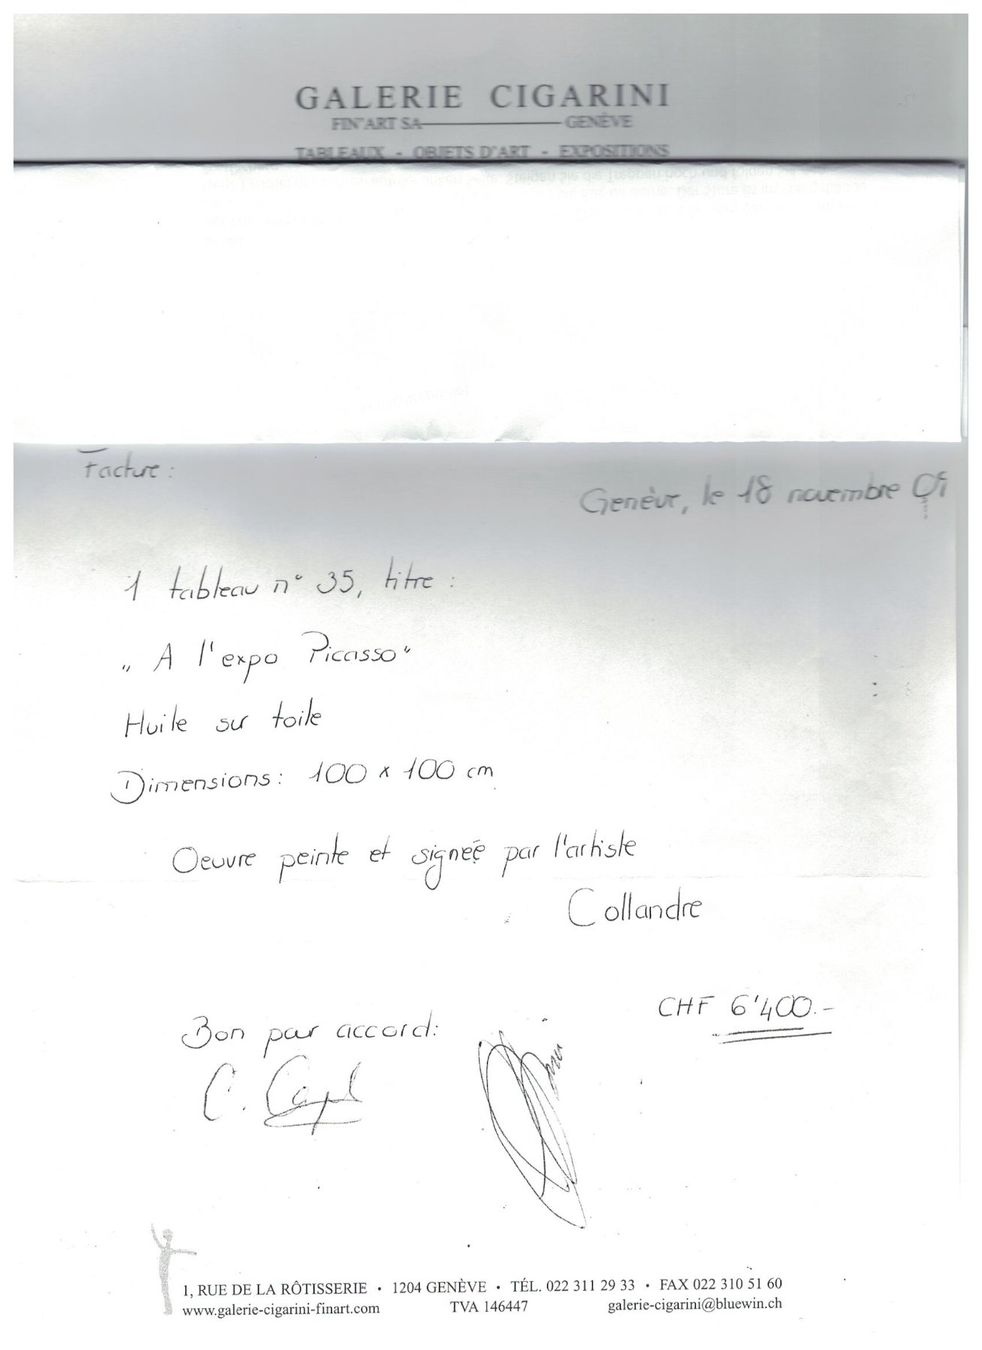 GALERIE CIGARINI
FIN'ART SA GENÈVE
TABLEAUX - OBJETS D'ART - EXPOSITIONS
Facture :
Genève, le 18 novembre
1 tableau n° 35, titre :
„ A l'expo Picasso"
Huile sur toile
Dimensions: 100 x 100 cm
Oeuvre peinte et signée par l'artiste
Collandre
CHF 6'400.-
Bon pour accord:
C.
1, RUE DE LA RÔTISSERIE • 1204 GENÈVE • TÉL. 022 311 29 33 • FAX 022 310 51 60
www.galerie-cigarini-finart.com TVA 146447 galerie-cigarini@bluewin.ch